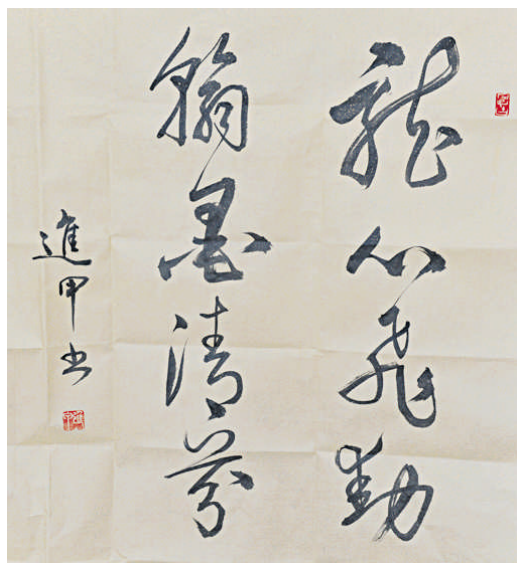 龍心飛動
翰墨清芬
進甲书